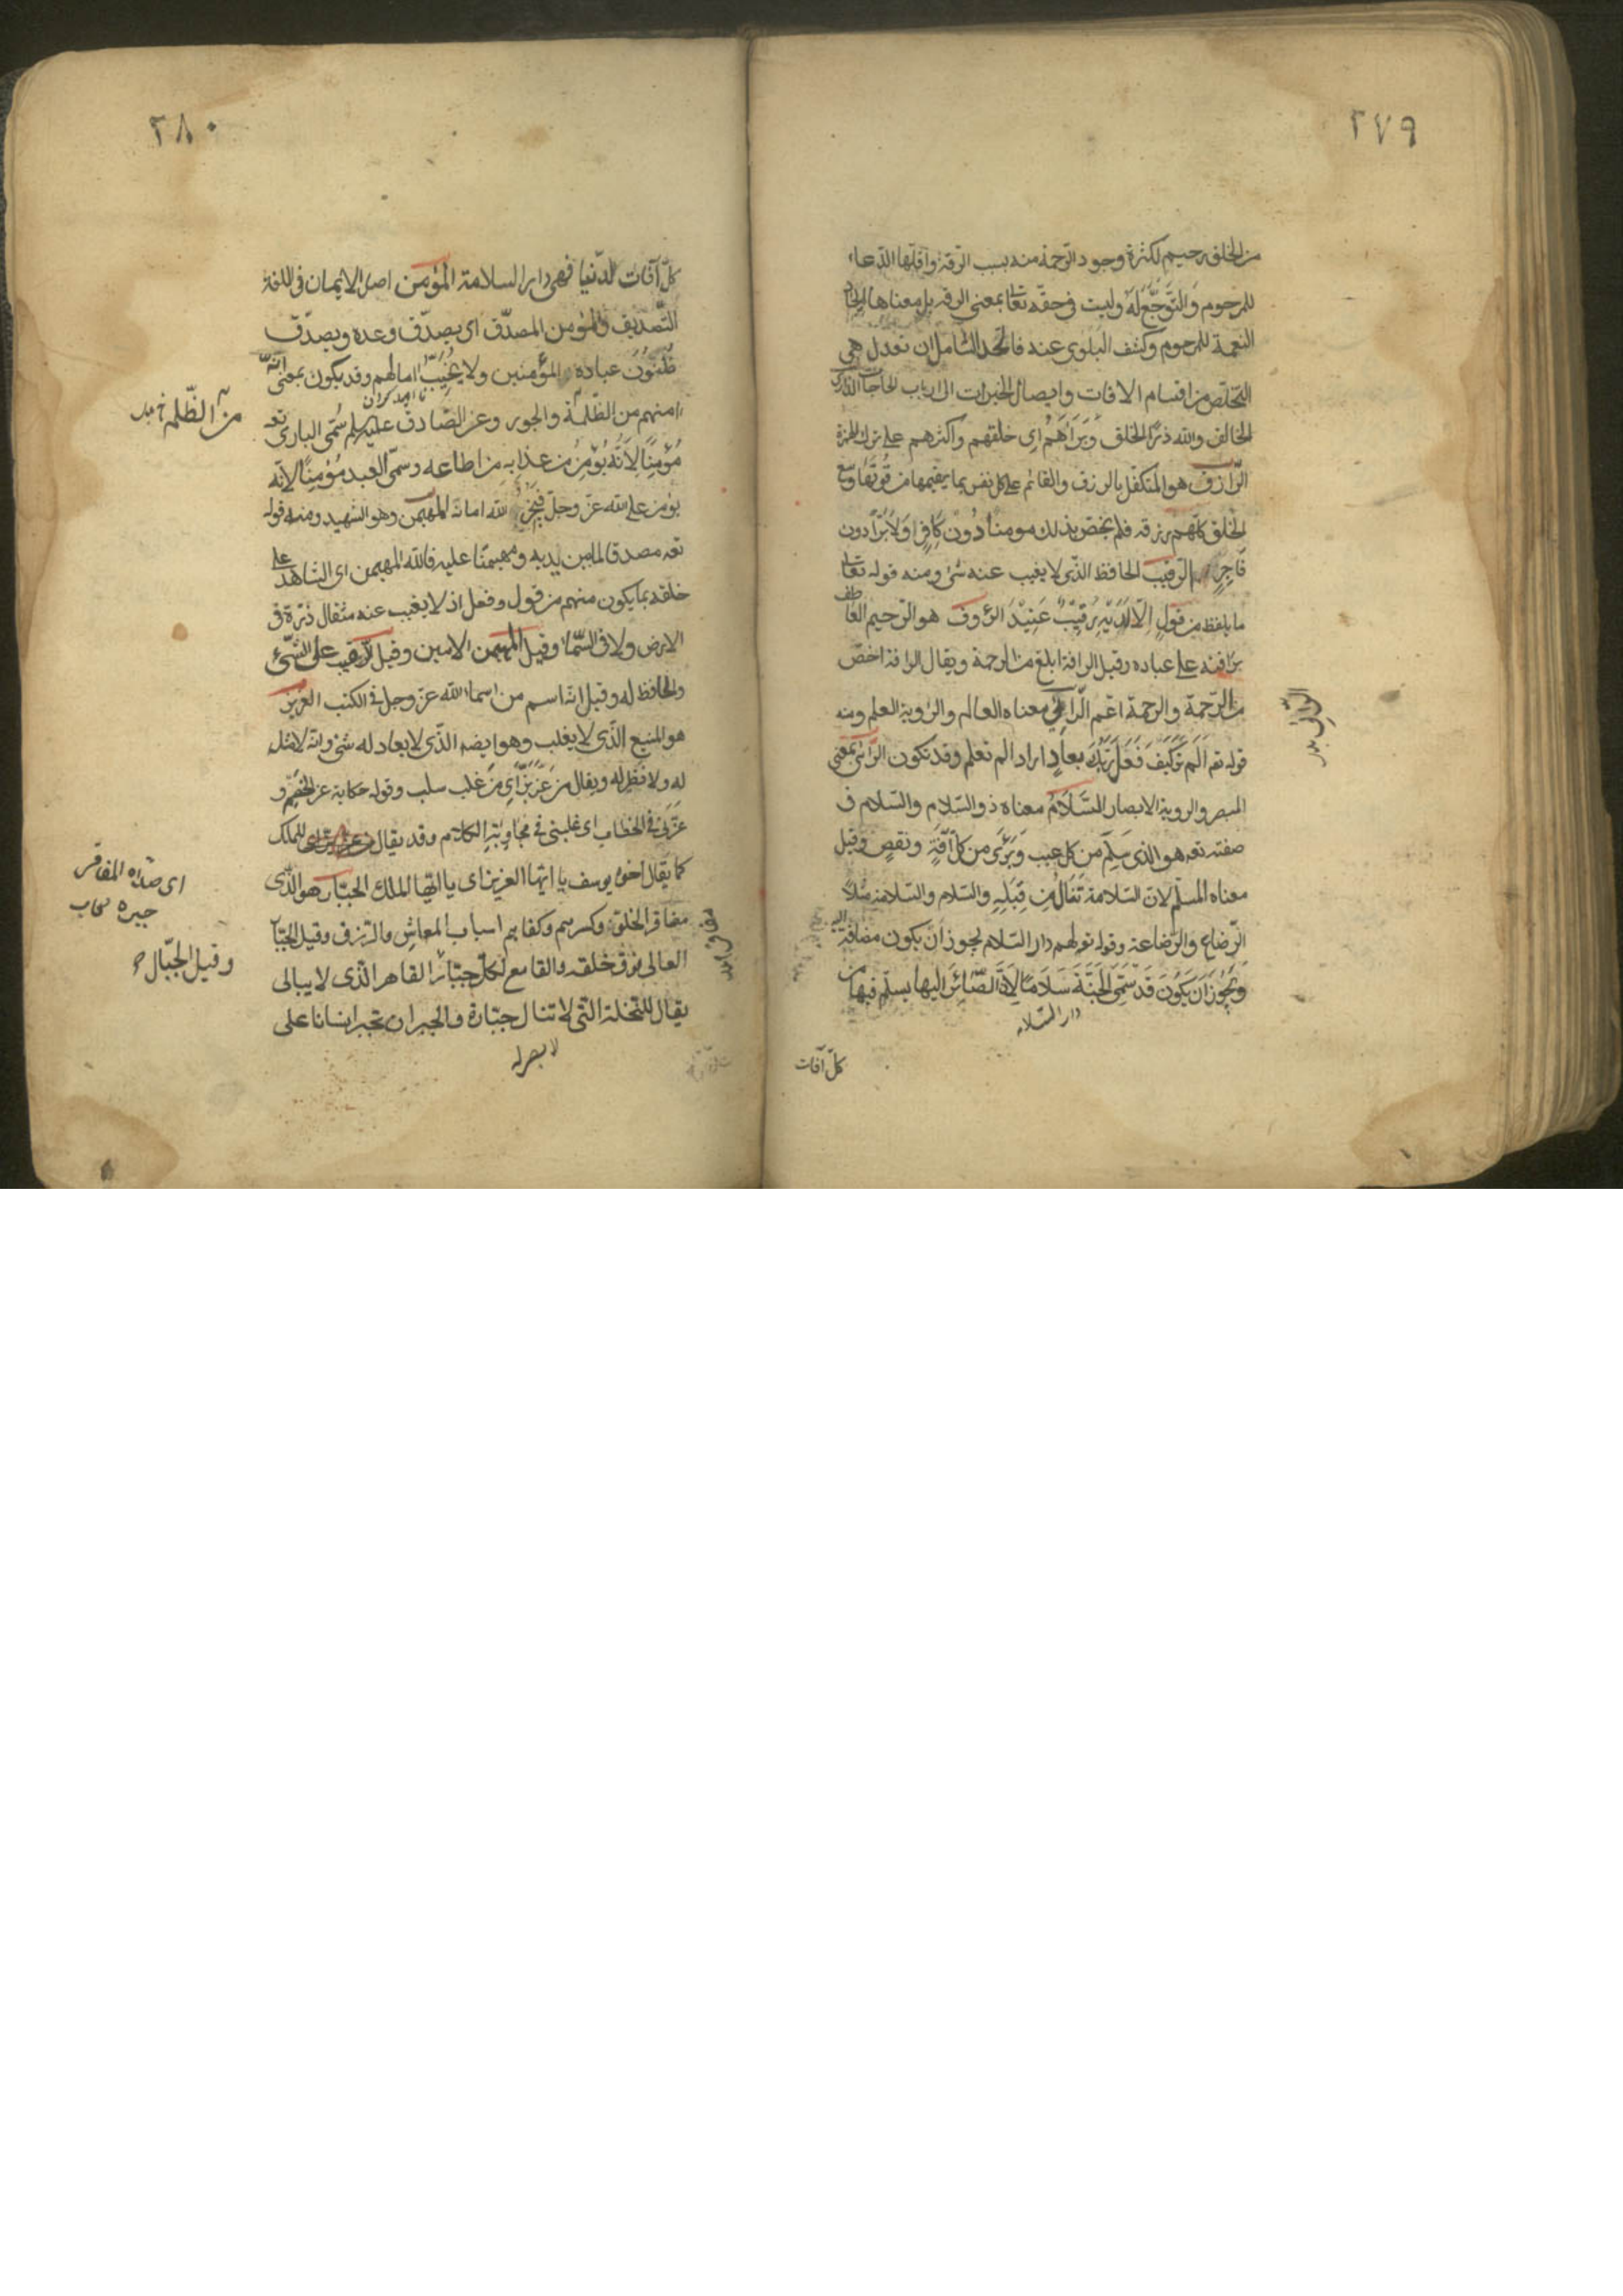 ٢٧٩
من الخلق رحيم لكثرة وجود الرحمة منه بسبب الرقة واقلّها الدّعاء
للمرحوم وَالتَّوَجُّعُ لَهُ وليست فى حقّه تعالى بمعنى الرقة بل معناها ايجاد
النعمة للمرحوم وكشف البلوى عنه فالحد الشامل ان تعدل هى
التخلّص من اقسام الافات وايصال الخيرات الى ارباب الحاجات الذارى
الخالق والله ذرأ الخلق وَبَرَأهُم اى خلقهم واكثرهم على ترك الهمزة
الرّازق هو المتكفّل بالرزق والقائم على كل نفس بما يقيمها من قُوتها وسع
الخلق كلّهم رزقه فلم يخصّ بذلك مومنا دُونَ كَافِرٍ اولا بَرًّا دون
فَاجِرٍ الرّقيب الحافظ الذّى لا يغيب عنه شئ ومنه قوله تعالى
ما يلفظ من قولٍ الّا لديْهِ رَقِيبٌ عَتِيْدٌ الرؤوف هو الرّحيم العاطف
برافته على عباده وقيل الرافة ابلغ من الرحمة ويقال الرافة اخصّ
من الرّحمة والرحمة اعم الرّائى معناه العالم والرؤية العلم ومنه
قوله تعه اَلَم تَرَكَيْفَ فَعَلَ رَبُّكَ بِعادٍ اراد الم تعلم وقد تكون الرّائى بمعنى
المبصر والروية الابصار السَّلَامُ معناه ذو السّلام والسّلام فى
صفته تعه هو الذى سَلِمَ من كل عيب وَبَرِئَ من كل آفَةٍ ونقصٍ وقيل
معناه المسلّم لان السّلامة تُنَالُ مِن قِبَلِهِ والسّلام والسّلامة مثلا
الرّضاع والرّضاعة وقوله تع لهم دار السّلام يجوز ان يكون مضافة اليه
وَيَجُوزُ اَنْ يَكُونَ قَدْ سَمَّى الجَنَّةَ سَلَامًا لِاَنَّ الصَّائِرَ اليها يسلم فيها من
دار السّلام
كلّ آفات
٢٨٠
كلّ آفات الدّنيا فهى دار السلامة المؤمن اصل الايمان فى اللغة
التّصديق والمؤمن المصدّق اى يصدّق وعده ويصدّق
ظُنُونَ عباده المؤمنين ولا يُخَيِّبُ امالهم وقد يكون بمعنى انّه
امنهم من الظّلمة والجور وعن الصّادق عليه سلم سُمّى البارى تعه
مُؤْمِنًا لِاَنَّهُ يُؤْمِنُ من عذابه من اطاعه وسمّى العبد مُؤْمِنًا لانّه
يؤمن على الله عزّ وجلّ فيجيز الله امانه المهيمن وهو الشهيد ومنه قوله
تعه مصدقا لما بين يديه ومهيمنًا عليه فالله المهيمن اى الشاهد على
خلقه بما يكون منهم من قول وفعل اذ لا يغيب عنه مثقال ذرّة فى
الارض ولا فى السّماء وقيل المهيمن الامين وقيل الرّقيب على الشّئ
والحافظ له وقيل انّه اسم من اسماء الله عزّ وجل فى الكتب العزيز
هو المنيع الّذى لا يغلب وهو ايضه الذّى لا يعادله شئ وانّه لا مثل
له ولا نظير له ويقال مَن عَزَّ بَزَّ اى مَن غلب سلب وقوله حكاية عن الخصم و
عَزَّنى فى الخطاب اى غلبنى فى مجاوبة الكلام وقد يقال للملك
كما يقال اخوة يوسف يا ايّها العزيز اى يا ايّها الملك الجبّار هو الذّى
مفاقر الخلق وكسرهم وكفاهم اسباب المعاش والرّزق وقيل الجبّار
العالى فوق خلقه والقامع لكلّ جبّار القاهر الذّى لا يبالى
يقال للنخلة التى لا تنال جبّارة والجبر ان تجبر انسانا على
من الظّلمه
اى المفاقر
وقيل الجبّال